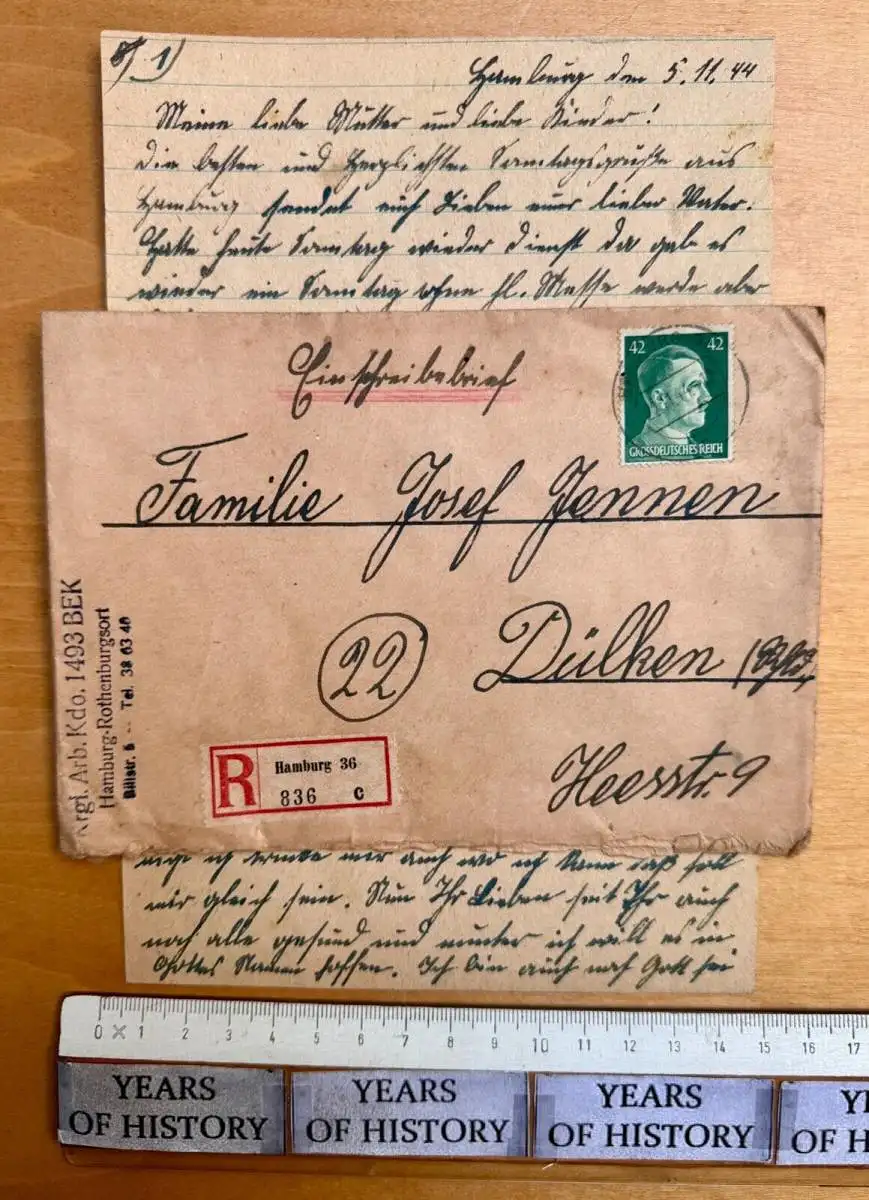 1)
Hamburg den 5.11.44
Meine liebe Mutter und liebe Kinder!
Die besten und herzlichsten Sontagsgrüße aus
Hamburg sendet euch Lieben euer lieber Vater.
Hatte heute Sontag wieder Dienst da gab es
wieder ein Sontag ohne hl. Messe werde aber
Einschreibebrief
42 42
GROSSDEUTSCHES REICH
Familie Josef Jennen
22
Dülken
Heesstr. 9
Krgf. Arb. Kdo. 1493 BEK
Hamburg-Rothenburgsort
Billstr. 6 -- Tel. 38 63 40
R
Hamburg 36
836 c
ich mir auch wo ich kann daß soll
mir gleich sein. Nun Ihr Lieben seit Ihr auch
noch alle gesund und munter ich will es in
Gottes Namen hoffen. Ich bin auch noch Gott sei
0 1 2 3 4 5 6 7 8 9 10 11 12 13 14 15 16 17
YEARS OF HISTORY
YEARS OF HISTORY
YEARS OF HISTORY
YE
OF H